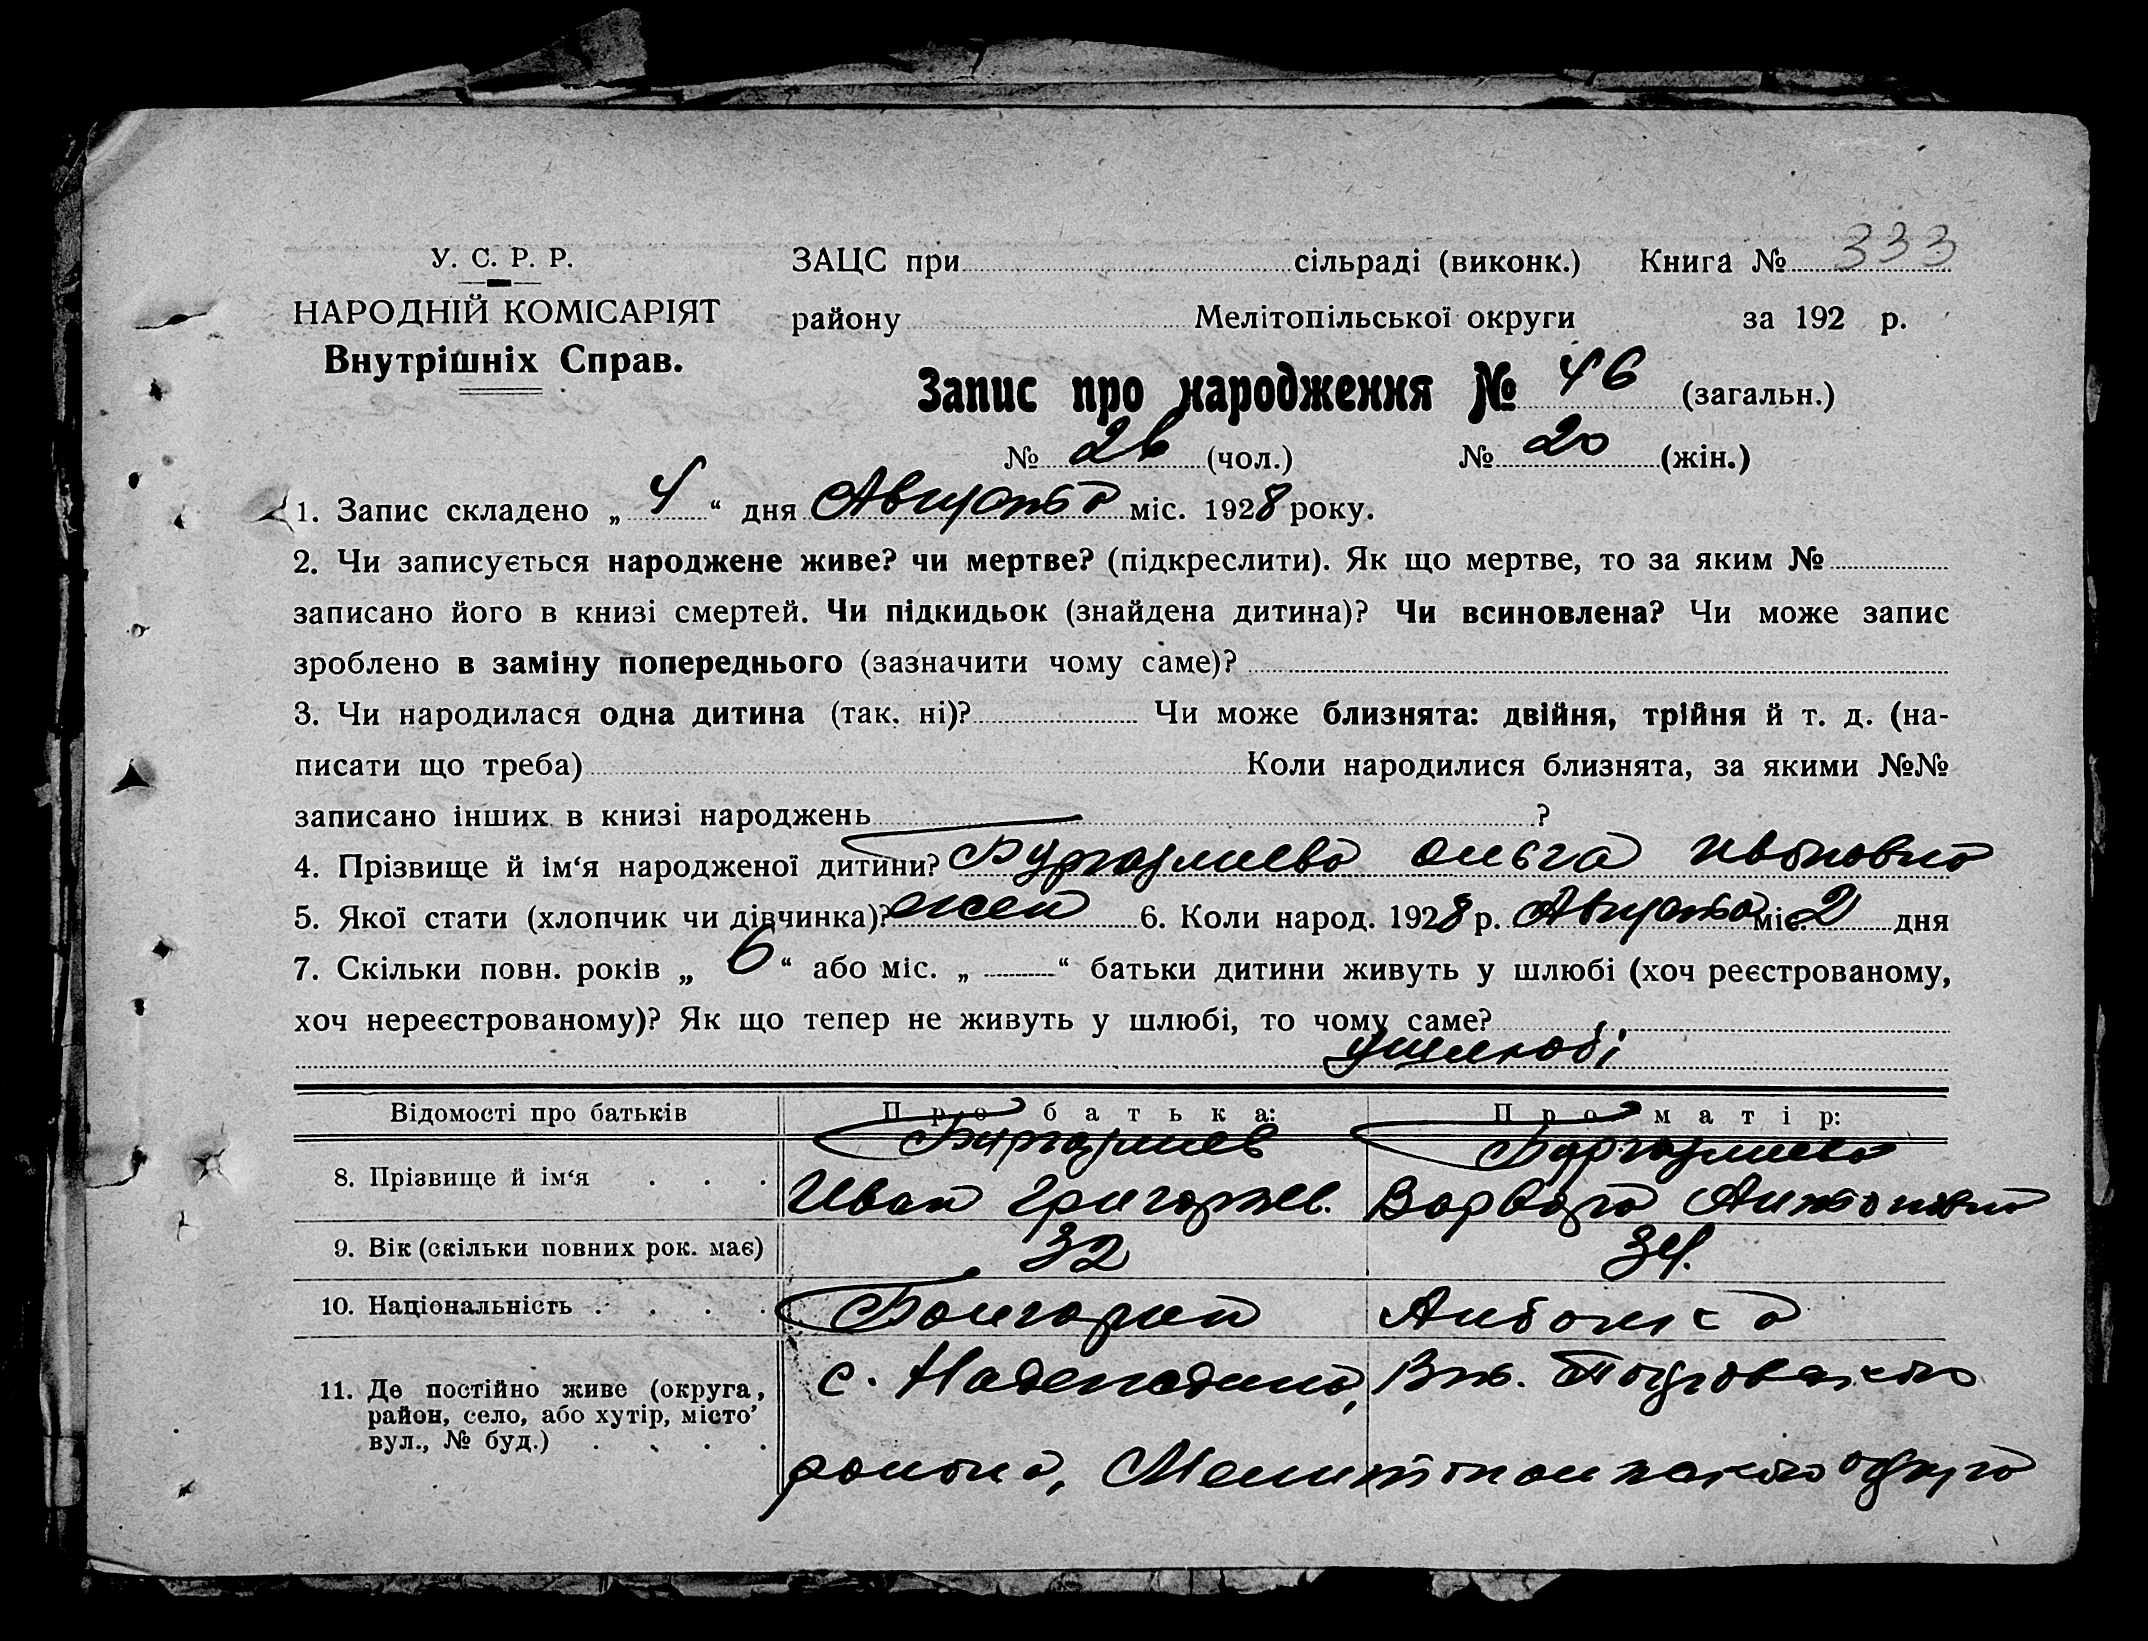 У. С. Р. Р.
НАРОДНІЙ КОМІСАРІЯТ
Внутрішніх Справ.
ЗАЦС при сільраді (виконк.) Книга № 333
району Мелітопільської округи за 192 р.
Запис про народження № 46 (загальн.)
№ 26 (чол.) № 20 (жін.)
1. Запис складено „ 4 “ дня Августа міс. 1928 року.
2. Чи записується народжене живе? чи мертве? (підкреслити). Як що мертве, то за яким №
записано його в книзі смертей. Чи підкидьок (знайдена дитина)? Чи всиновлена? Чи може запис
зроблено в заміну попереднього (зазначити чому саме)?
3. Чи народилася одна дитина (так, ні)? Чи може близнята: двійня, трійня й т. д. (на-
писати що треба) Коли народилися близнята, за якими №№
записано інших в книзі народжень ?
4. Прізвище й ім‘я народженої дитини? Ольга Ивановна
5. Якої стати (хлопчик чи дівчинка)? жен 6. Коли народ. 1928 р. Августа міс. 2 дня
7. Скільки повн. років „ 6 “ або міс. „ “ батьки дитини живуть у шлюбі (хоч реєстрованому,
хоч нереєстрованому)? Як що тепер не живуть у шлюбі, то чому саме?
у шлюбі
Відомості про батьків Про батька: Про матір:
8. Прізвище й ім‘я . . .
Иван Григорьев. Варвара Антоновна
9. Вік (скільки повних рок. має) 32 34.
10. Національність . . . . Болгарин
11. Де постійно живе (округа,
район, село, або хутір, місто
вул., № буд.) . . . .
с.
района, Мелитопольского округа